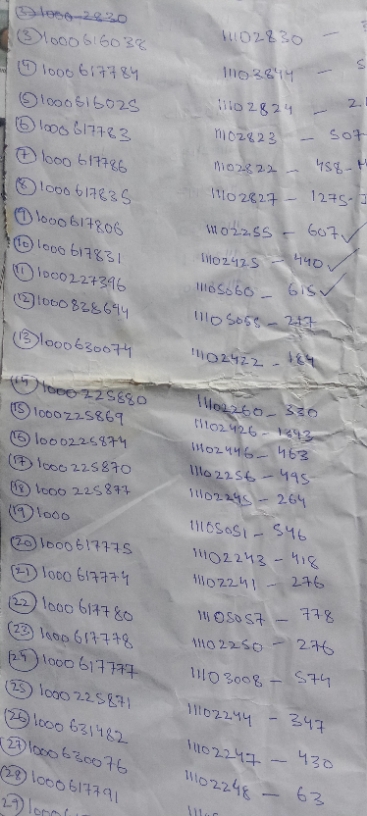 1000 2830
③ 1000616038 11102830 -
④ 1000617784 11103844 - 5
⑤ 1000616025 11102824 - 2.
⑥ 1000617783 11102823 - 507
⑦ 1000617786 11102822 - 458-
⑧ 1000617835 11102827 - 1275-
⑨ 1000617806 11102255 - 607 ✓
⑩ 1000617831 11102425 - 440 ✓
⑪ 1000227396 11105060 - 615 ✓
⑫ 1000838694 11105055 - 277
⑬ 1000630074 11102422 - 184
⑭ 1000225880 11102260 - 330
⑮ 1000225869 11102426 - 1343
⑯ 1000225874 11102446 - 463
⑰ 1000225870 11102256 - 495
⑱ 1000225877 11102245 - 264
⑲ 1000 11105051 - 546
⑳ 1000617775 11102243 - 418
㉑ 1000617774 11102241 - 276
㉒ 1000617780 11105057 - 778
㉓ 1000617778 11102250 - 276
㉔ 1000617777 11103008 - 574
㉕ 1000225871 11102244 - 347
㉖ 1000631482 11102247 - 430
㉗ 1000630076 11102248 - 63
㉘ 1000617791
㉙ 1000